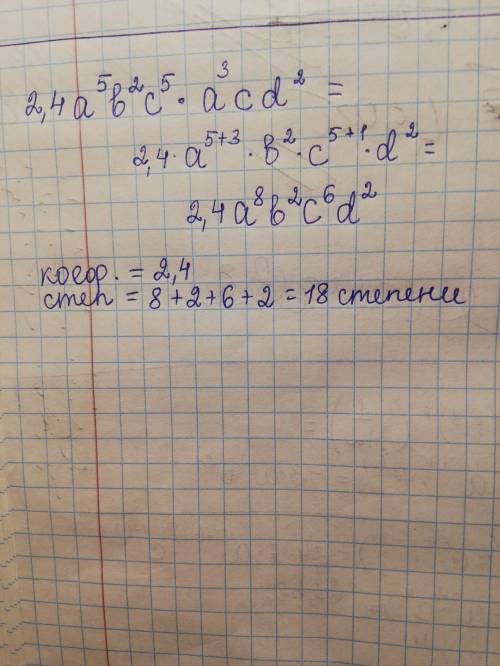 2,4a⁵b²c⁵ · a³cd² =
2,4 · a⁵⁺³ · b² · c⁵⁺¹ · d² =
2,4a⁸b²c⁶d²
коэф. = 2,4
степ = 8 + 2 + 6 + 2 = 18 степени